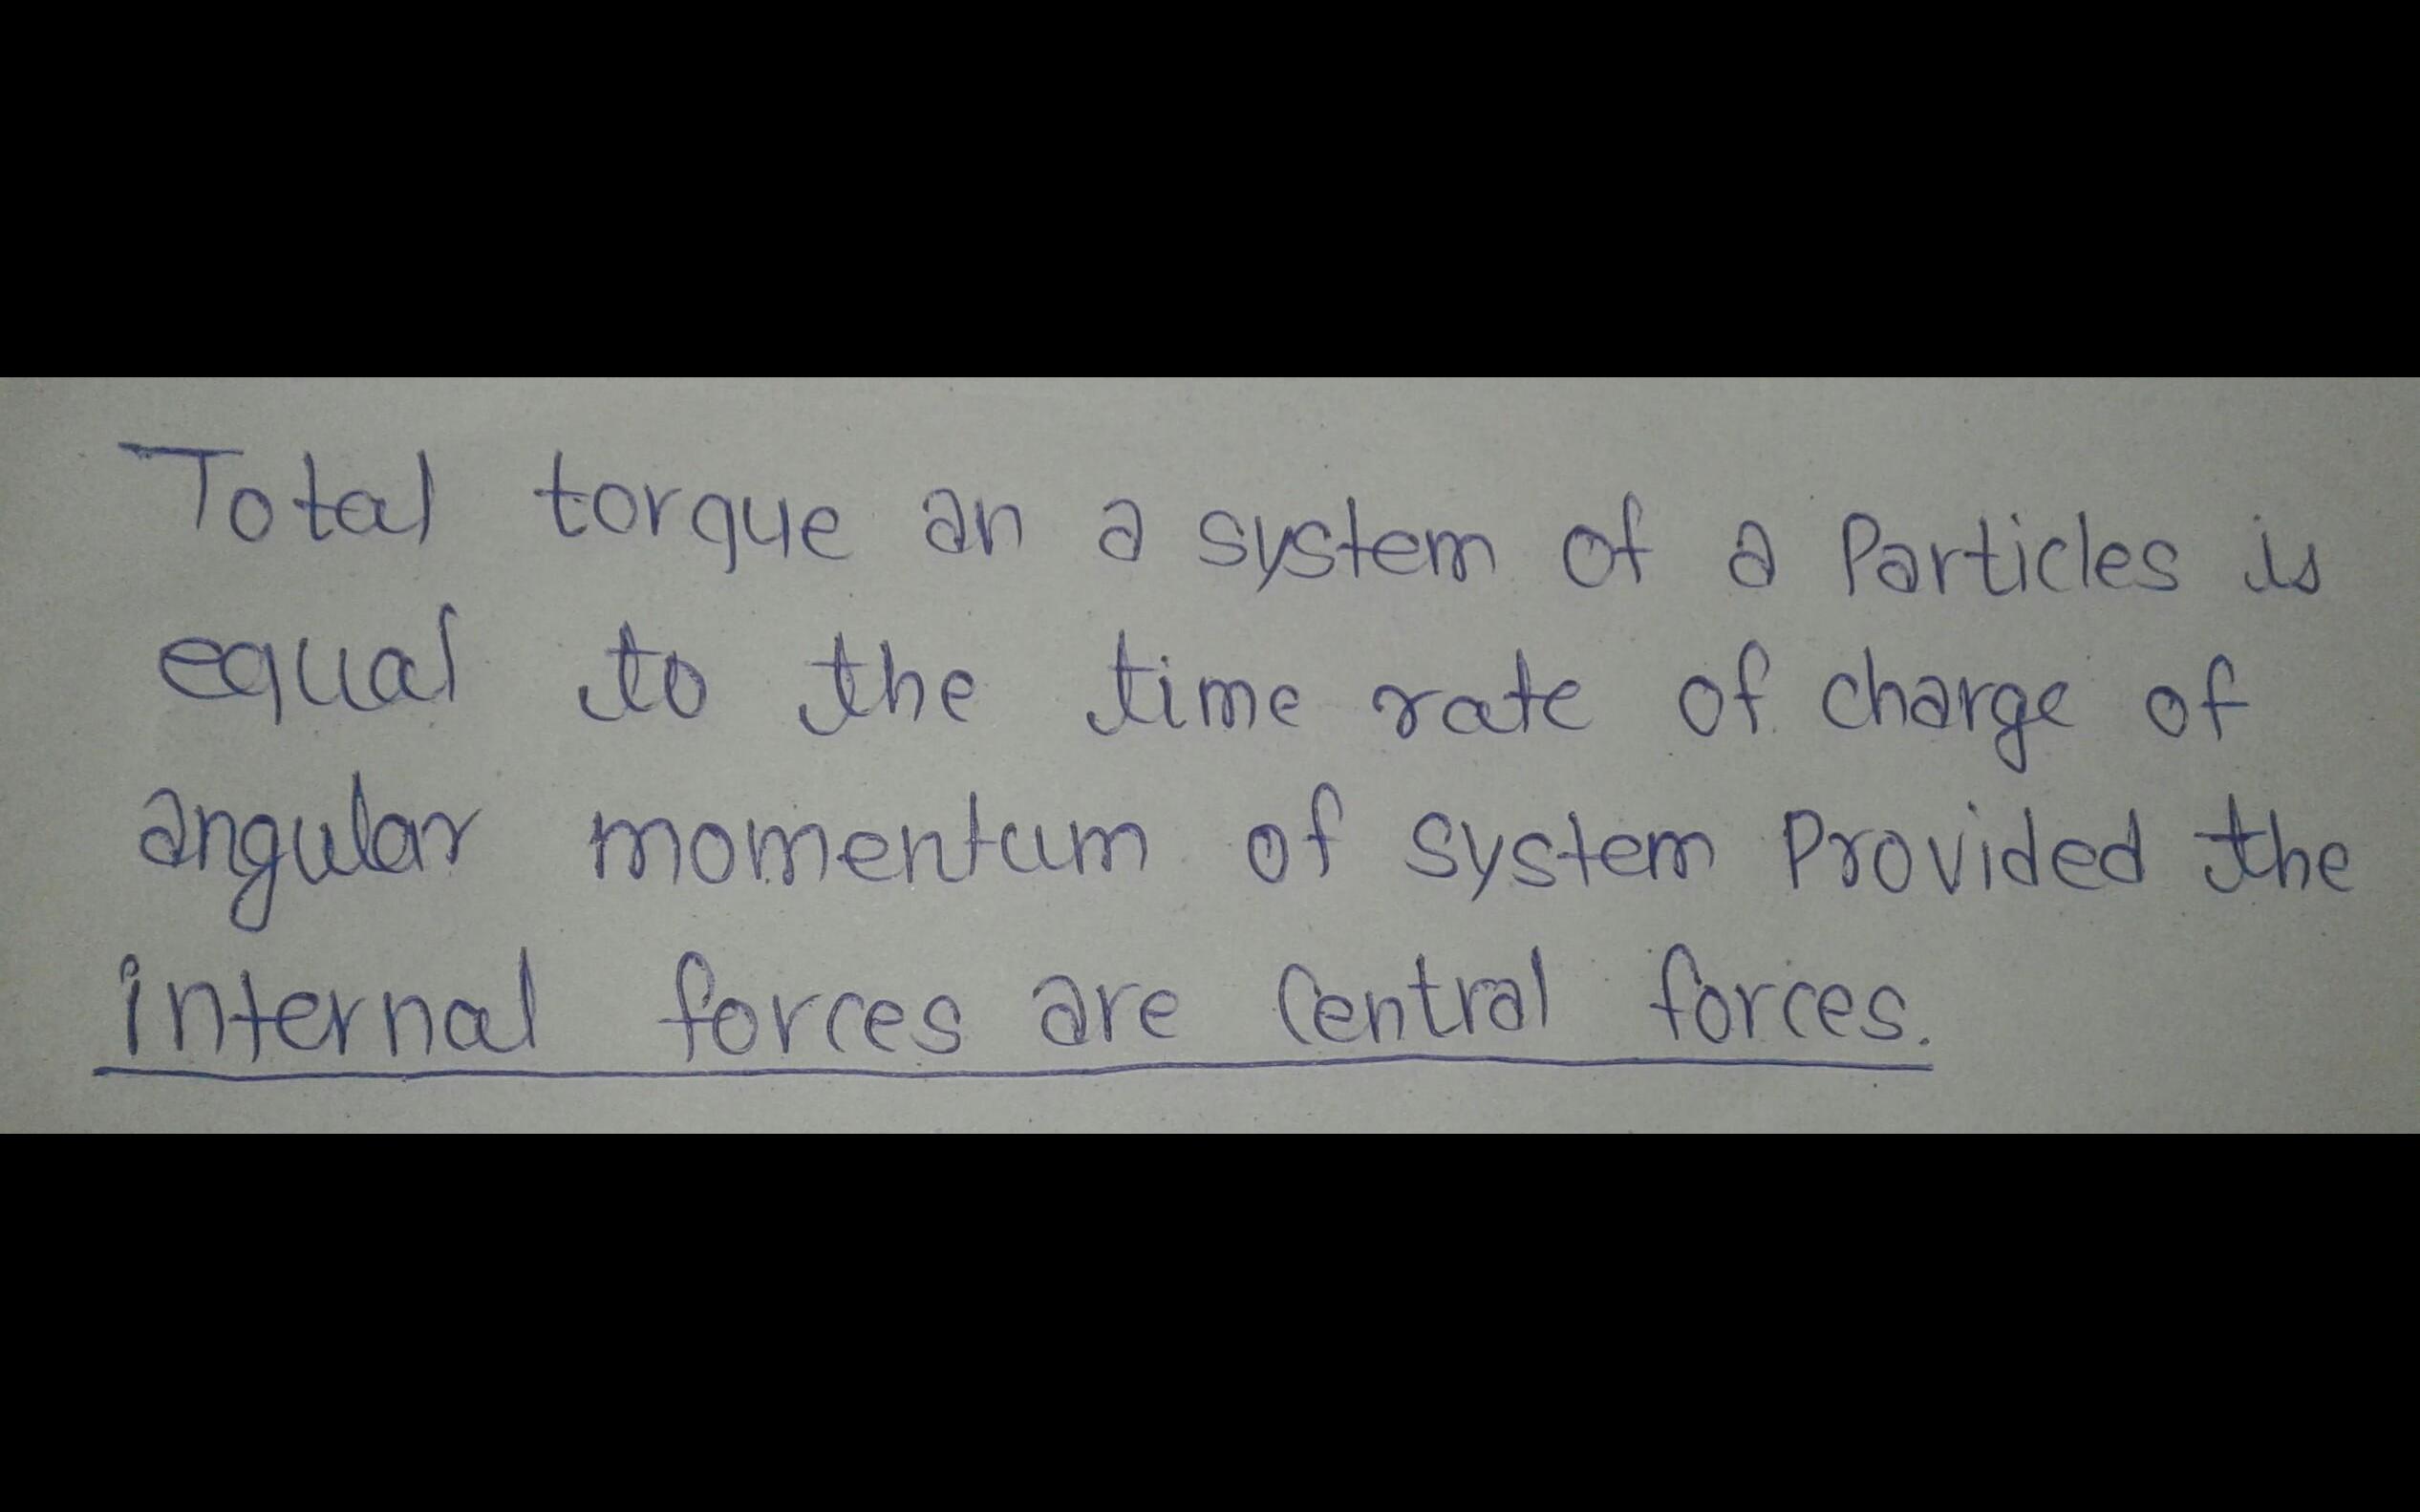 Total torque an a system of a Particles is
equal to the time rate of charge of
angular momentum of system Provided the
internal forces are Central forces.